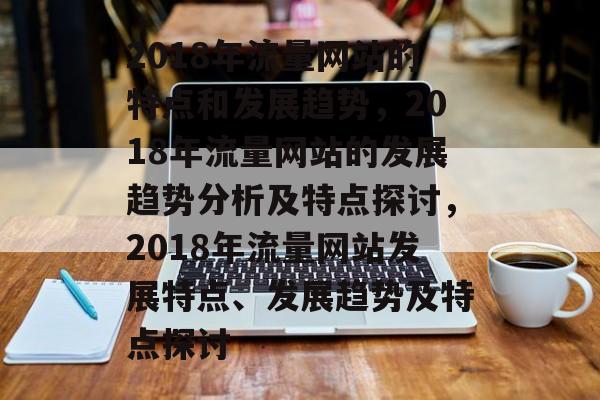 2018年流量网站的
特点和发展趋势，20
18年流量网站的发展
趋势分析及特点探讨，
2018年流量网站发
展特点、发展趋势及特
点探讨